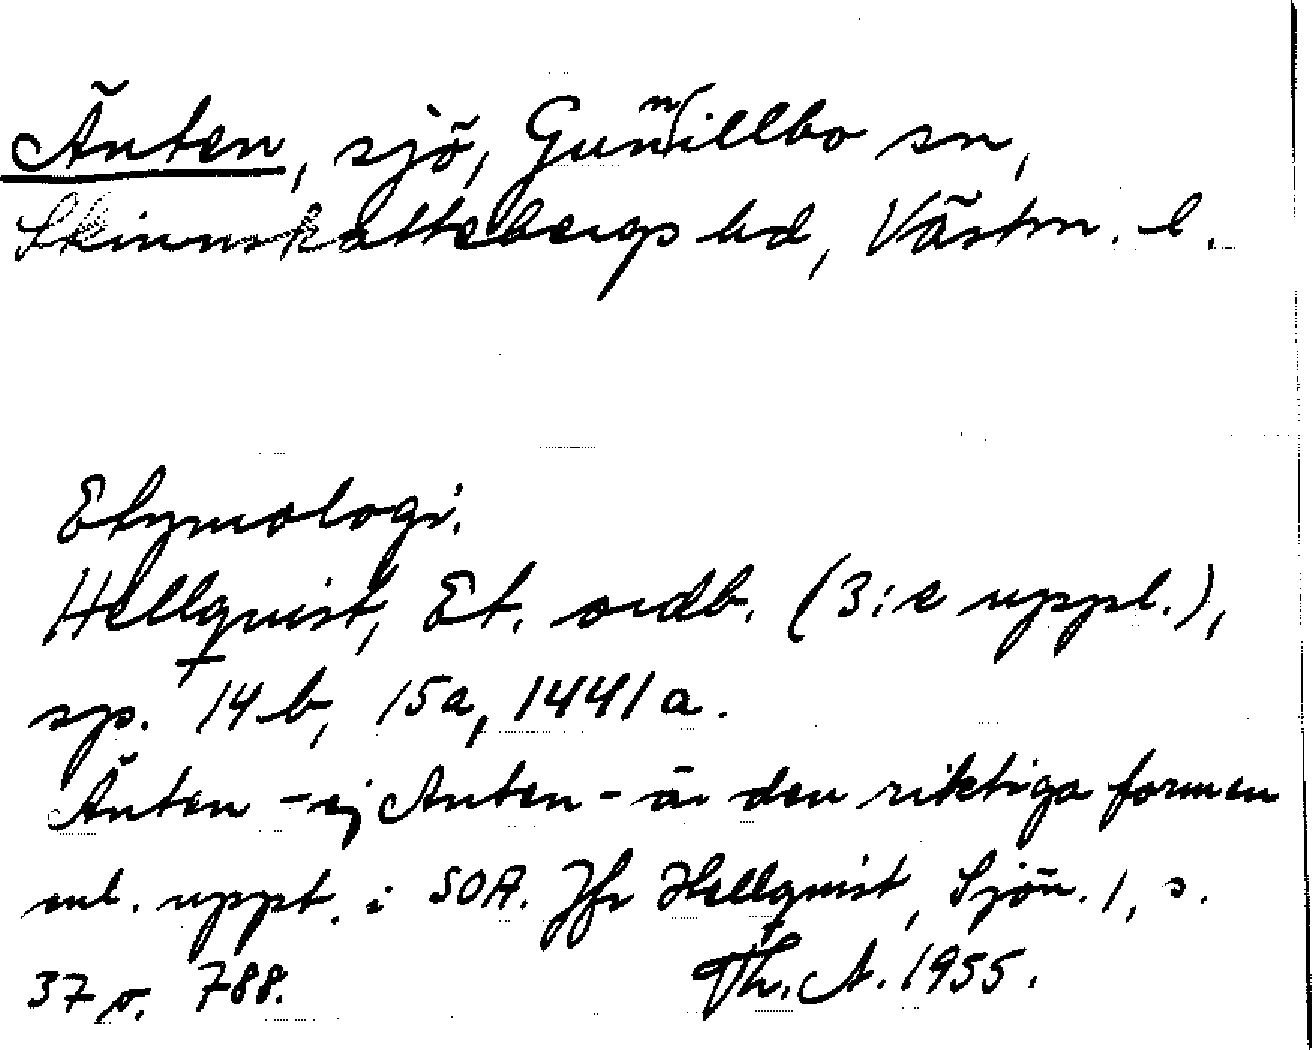 Änten, sjö, Gunnillbo sn,
Skinnskattebergs hd, Västm. l.
Etymologi.
Hellquist, Et. ordb. (3:e uppl.),
sp. 14 b, 15a, 1441 a.
Änten - ej Anten - är den riktiga formen
enl. uppt. i SOA. Jfr Hellquist, Sjön. 1, s.
37 o. 788.
Th. A. 1955.